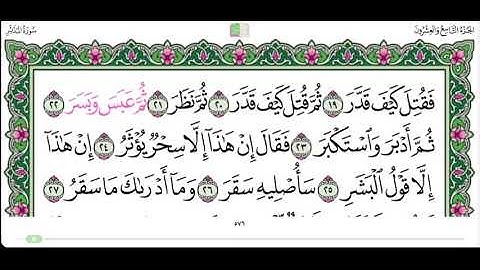 الجزء التاسع والعشرون
سورة المدثر
فَقُتِلَ كَيْفَ قَدَّرَ ١٩ ثُمَّ قُتِلَ كَيْفَ قَدَّرَ ٢٠ ثُمَّ نَظَرَ ٢١ ثُمَّ عَبَسَ وَبَسَرَ ٢٢
ثُمَّ أَدْبَرَ وَٱسْتَكْبَرَ ٢٣ فَقَالَ إِنْ هَٰذَآ إِلَّا سِحْرٌ يُؤْثَرُ ٢٤ إِنْ هَٰذَآ
إِلَّا قَوْلُ ٱلْبَشَرِ ٢٥ سَأُصْلِيهِ سَقَرَ ٢٦ وَمَآ أَدْرَىٰكَ مَا سَقَرُ ٢٧
٥٧٦